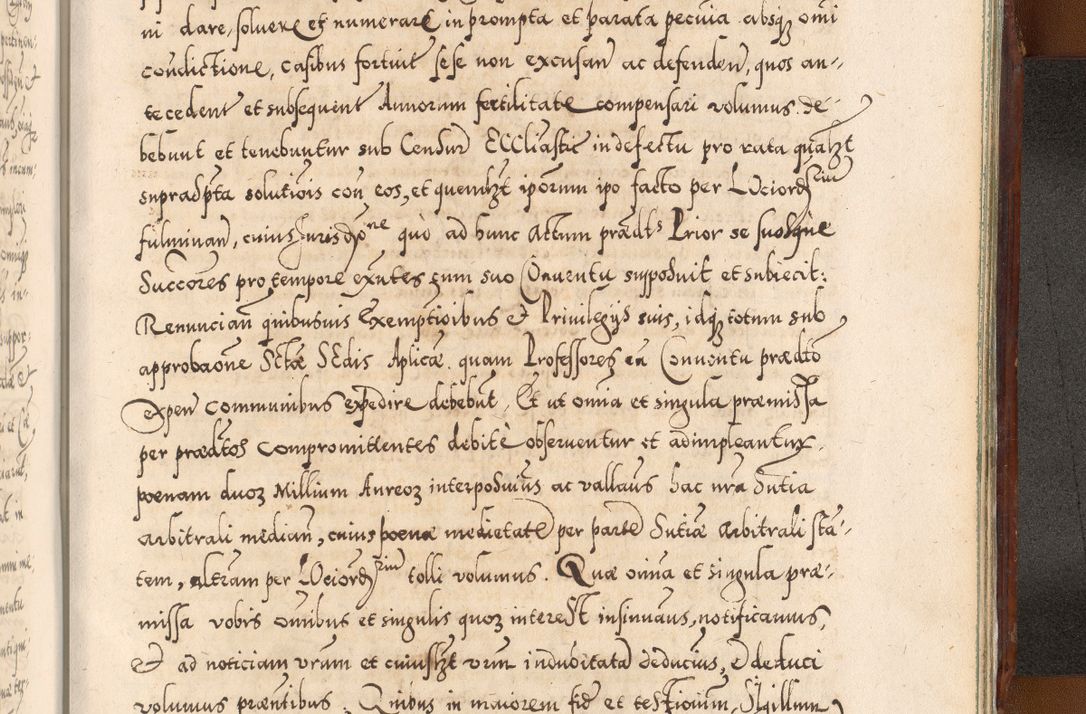 ni dare, soluere et numerare in prompta et parata pecuia absq, omi
condictione, casibus fortuit sese non excusan ac defenden, quos an-
tecedent et subsequent Annorum fertilitate compensari volumus de-
bebunt et tenebuntur sub Censur Eccliastic in defectu pro rata qualzt
supradpta solutiois con eos, et quemlzt iporum ipo facto per LOciord
fulminan, cuius Jurisdone quo ad hunc Actum prædts Prior se suosque
Succores pro tempore exntes cum suo Conuentu supposuit et subiecit:
Renuncian quibusuis Exemptioibus et Priuilegijs suis, idq, totum sub
approbaone Sctæ Sedis Aplicæ quam Professores Conuentu prædto
expen communibus expedire debebut. Et ut omia et singula præmissa
per prædtos compromittentes debite obseruentur et adimpleantur.
poenam duoz Millium Aureoz interposuius ac vallaus hac nra sntia
arbitrali median, cuius poenæ medietate per parte sntiæ arbitrali sta-
tem, altram per LOciord tolli volumus. Quæ omia et singula præ-
missa vobis omibus et singulis quoz interest insinuaus, notificamus,
et ad noticiam vram et cuiuslzt vrm indubitata deducius, et deduci
volumus præntibus. Quibus in maiorem fid et testioium, Sigillum